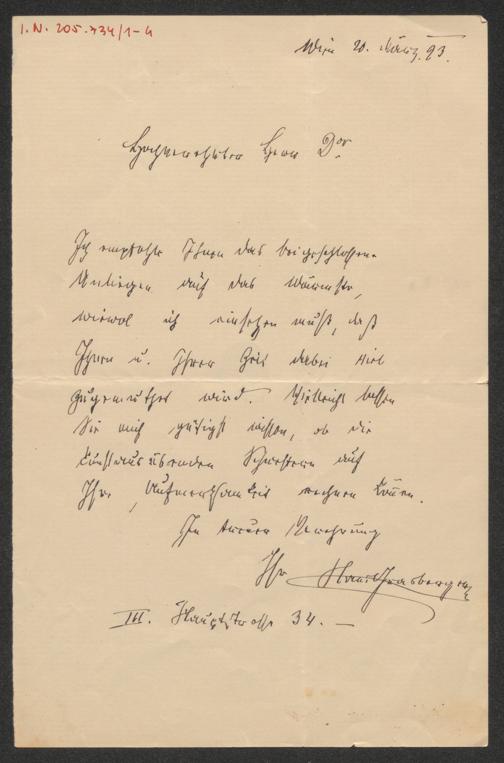 I.N. 205.734/1-4
Wien 20. März 93.
Hochverehrter Herr Dor
Ich empfehle Ihnen das beigeschlossene
Anliegen auf das Wärmste,
wiewol ich einsehen muß, daß
Ihnen u. Ihrer Zeit dabei viel
zugemuthet wird. Vielleicht lassen
Sie mich gütigst wissen, ob die
kunstausübenden Schwestern auf
Ihre Aufmerksamkeit rechnen können.
In treuer Verehrung
Ihr
III. Hauptstrasse 34. —